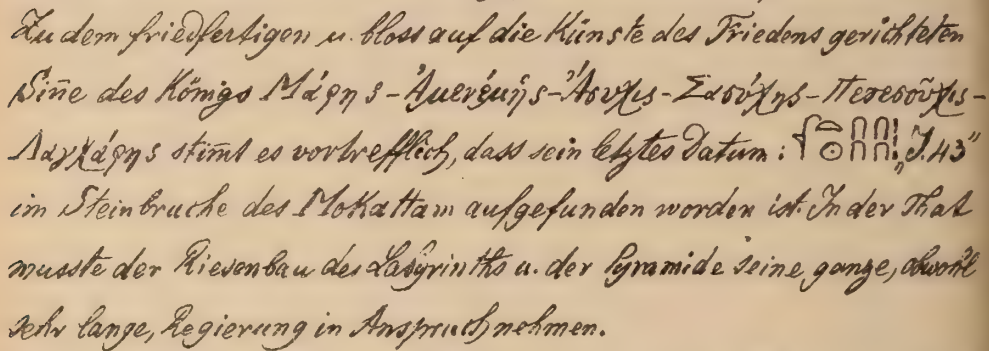 Zu dem friedfertigen u. bloss auf die Künste des Friedens gerichteten
Sin̄e des Königs Μάρης-Ἀμενέμης-Ἄσυχις-Σασύχης-Πετεσοῦχις-
Λαχάρης stim̄t es vortrefflich, dass sein letztes Datum: 𓆳𓏏𓇳𓎆𓎆𓎆𓎆𓏪 „J. 43“
im Steinbruche des Mokattam aufgefunden worden ist. In der That
musste der Riesenbau des Labyrinths u. der Pyramide seine ganze, obwohl
sehr lange, Regierung in Anspruch nehmen.